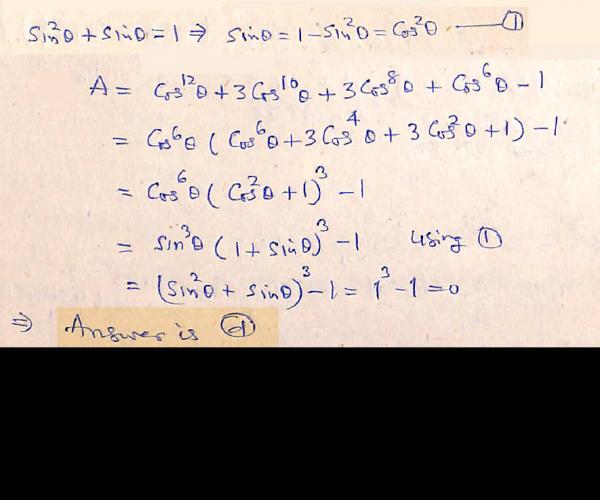 sin²θ + sinθ = 1 ⇒ sinθ = 1 - sin²θ = Cos²θ —— ①
A = Cos¹²θ + 3Cos¹⁰θ + 3Cos⁸θ + Cos⁶θ - 1
= Cos⁶θ (Cos⁶θ + 3Cos⁴θ + 3Cos²θ + 1) - 1
= Cos⁶θ (Cos²θ + 1)³ - 1
= sin³θ (1 + sinθ)³ - 1 using ①
= (sin²θ + sinθ)³ - 1 = 1³ - 1 = 0
⇒ Answer is ⓓ